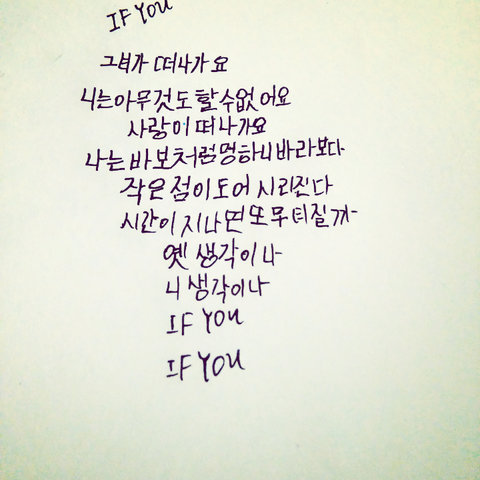 IF YOU
그녀가 떠나가요
나는 아무것도 할 수 없어요
사랑이 떠나가요
나는 바보처럼 멍하니 바라보다
작은 점이 도어 시라진다
시간이 지나면 또 무뎌질까
옛 생각이 나
니 생각이 나
IF YOU
IF YOU